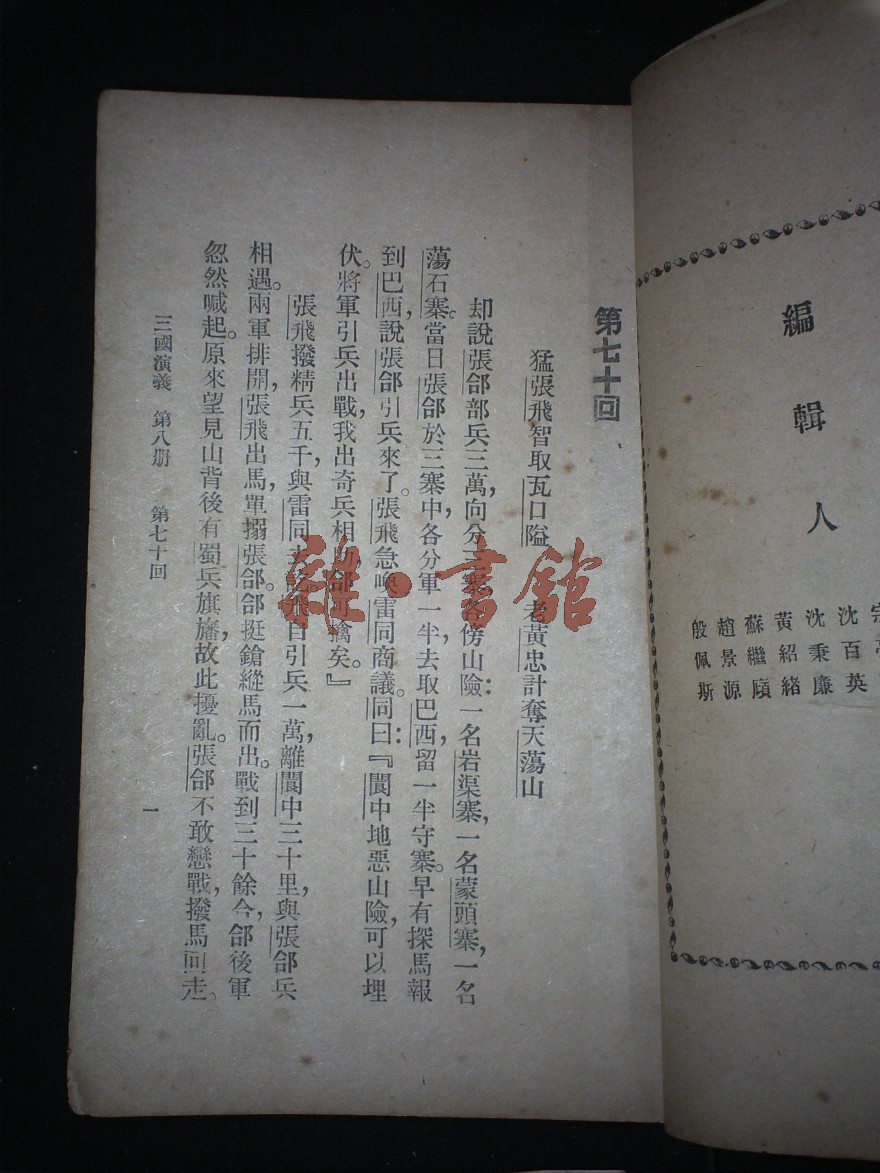 編輯人
沈百英
沈秉廉
黃紹緒
蘇繼廎
趙景源
殷佩斯
第七十回
猛張飛智取瓦口隘 老黃忠計奪天蕩山
却說張郃部兵三萬,向分三寨,各傍山險:一名岩渠寨,一名蒙頭寨,一名
蕩石寨。當日張郃於三寨中,各分軍一半,去取巴西,留一半守寨。早有探馬報
到巴西,說張郃引兵來了。張飛急喚雷同商議。同曰:『閬中地惡山險,可以埋
伏。將軍引兵出戰,我出奇兵相助,郃可擒矣。』
張飛撥精兵五千,與雷同去訖。飛自引兵一萬,離閬中三十里,與張郃兵
相遇。兩軍排開,張飛出馬,單搦張郃。郃挺鎗縱馬而出。戰到三十餘合,郃後軍
忽然喊起。原來望見山背後有蜀兵旗旛,故此擾亂。張郃不敢戀戰,撥馬回走。
三國演義 第八册 第七十回 一
雜·書館